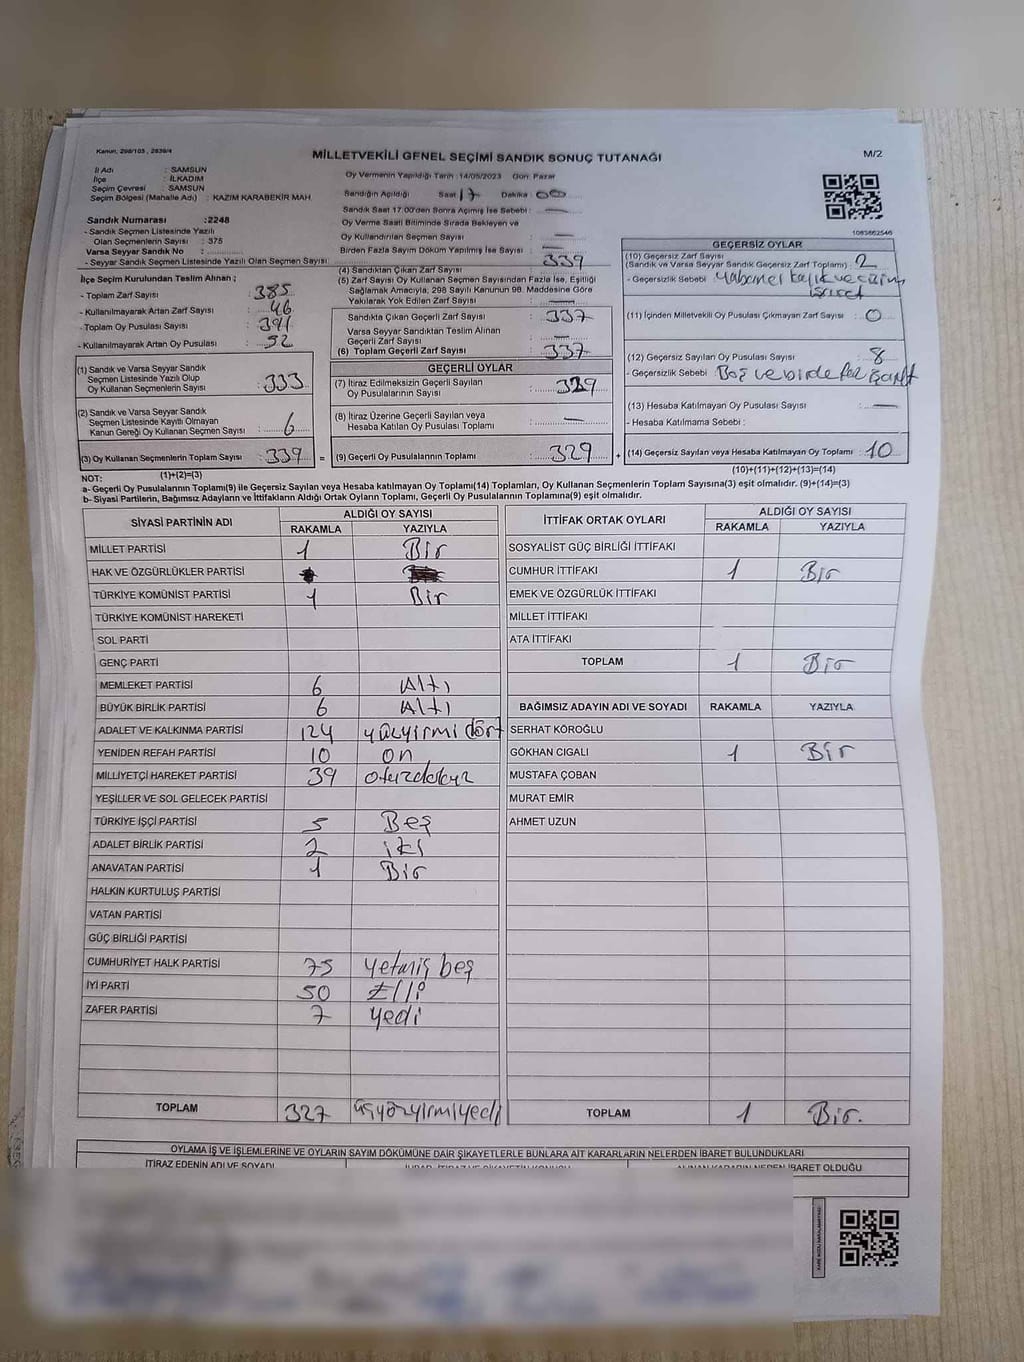 Kanun, 298/103 , 2839/4
MİLLETVEKİLİ GENEL SEÇİMİ SANDIK SONUÇ TUTANAĞI
M/2
İl Adı : SAMSUN
İlçe : İLKADIM
Seçim Çevresi : SAMSUN
Seçim Bölgesi (Mahalle Adı) : KAZIM KARABEKİR MAH
Sandık Numarası :2248
- Sandık Seçmen Listesinde Yazılı
Olan Seçmenlerin Sayısı : 375
Varsa Seyyar Sandık No :
- Seyyar Sandık Seçmen Listesinde Yazılı Olan Seçmen Sayısı:
İlçe Seçim Kurulundan Teslim Alınan ;
- Toplam Zarf Sayısı : 385
- Kullanılmayarak Artan Zarf Sayısı : 46
- Toplam Oy Pusulası Sayısı : 391
- Kullanılmayarak Artan Oy Pusulası : 52
(1) Sandık ve Varsa Seyyar Sandık
Seçmen Listesinde Yazılı Olup
Oy Kullanan Seçmenlerin Sayısı : 333
(2) Sandık ve Varsa Seyyar Sandık
Seçmen Listesinde Kayıtlı Olmayan
Kanun Gereği Oy Kullanan Seçmen Sayısı : 6
(3) Oy Kullanan Seçmenlerin Toplam Sayısı : 339 =
Oy Vermenin Yapıldığı Tarih :14/05/2023 Gün: Pazar
Sandığın Açıldığı Saat : 17 Dakika : 00
Sandık Saat 17:00'den Sonra Açılmış İse Sebebi : —
Oy Verme Saati Bitiminde Sırada Bekleyen ve
Oy Kullandırılan Seçmen Sayısı : —
Birden Fazla Sayım Döküm Yapılmış İse Sayısı : —
(4) Sandıktan Çıkan Zarf Sayısı : 339
(5) Zarf Sayısı Oy Kullanan Seçmen Sayısından Fazla İse, Eşitliği
Sağlamak Amacıyla, 298 Sayılı Kanunun 98. Maddesine Göre
Yakılarak Yok Edilen Zarf Sayısı : —
Sandıkta Çıkan Geçerli Zarf Sayısı : 337
Varsa Seyyar Sandıktan Teslim Alınan
Geçerli Zarf Sayısı : —
(6) Toplam Geçerli Zarf Sayısı : 337
GEÇERLİ OYLAR
(7) İtiraz Edilmeksizin Geçerli Sayılan
Oy Pusulalarının Sayısı : 329
(8) İtiraz Üzerine Geçerli Sayılan veya
Hesaba Katılan Oy Pusulası Toplamı : —
(9) Geçerli Oy Pusulalarının Toplamı : 329 +
1083862546
GEÇERSİZ OYLAR
(10) Geçersiz Zarf Sayısı
(Sandık ve Varsa Seyyar Sandık Geçersiz Zarf Toplamı) : 2
- Geçersizlik Sebebi : Yabancı
işaret
(11) İçinden Milletvekili Oy Pusulası Çıkmayan Zarf Sayısı : 0
(12) Geçersiz Sayılan Oy Pusulası Sayısı : 8
- Geçersizlik Sebebi : Boş ve birden fazla işaret
(13) Hesaba Katılmayan Oy Pusulası Sayısı : —
- Hesaba Katılmama Sebebi :
(14) Geçersiz Sayılan veya Hesaba Katılmayan Oy Toplamı : 10
NOT: (1)+(2)=(3) (10)+(11)+(12)+(13)=(14)
a- Geçerli Oy Pusulalarının Toplamı(9) ile Geçersiz Sayılan veya Hesaba Katılmayan Oy Toplamı(14) Toplamları, Oy Kullanan Seçmenlerin Toplam Sayısına(3) eşit olmalıdır. (9)+(14)=(3)
b- Siyasi Partilerin, Bağımsız Adayların ve İttifakların Aldığı Ortak Oyların Toplamı, Geçerli Oy Pusulalarının Toplamına(9) eşit olmalıdır.
SİYASİ PARTİNİN ADI ALDIĞI OY SAYISI
RAKAMLA YAZIYLA
MİLLET PARTİSİ 1 Bir
HAK VE ÖZGÜRLÜKLER PARTİSİ
TÜRKİYE KOMÜNİST PARTİSİ 1 Bir
TÜRKİYE KOMÜNİST HAREKETİ
SOL PARTİ
GENÇ PARTİ
MEMLEKET PARTİSİ 6 Altı
BÜYÜK BİRLİK PARTİSİ 6 Altı
ADALET VE KALKINMA PARTİSİ 124 yüzyirmi dört
YENİDEN REFAH PARTİSİ 10 on
MİLLİYETÇİ HAREKET PARTİSİ 39 otuzdokuz
YEŞİLLER VE SOL GELECEK PARTİSİ
TÜRKİYE İŞÇİ PARTİSİ 5 Beş
ADALET BİRLİK PARTİSİ 2 iki
ANAVATAN PARTİSİ 1 Bir
HALKIN KURTULUŞ PARTİSİ
VATAN PARTİSİ
GÜÇ BİRLİĞİ PARTİSİ
CUMHURİYET HALK PARTİSİ 75 yetmiş beş
İYİ PARTİ 50 Elli
ZAFER PARTİSİ 7 yedi
TOPLAM 327 üçyüzyirmiyedi
İTTİFAK ORTAK OYLARI ALDIĞI OY SAYISI
RAKAMLA YAZIYLA
SOSYALİST GÜÇ BİRLİĞİ İTTİFAKI
CUMHUR İTTİFAKI 1 Bir
EMEK VE ÖZGÜRLÜK İTTİFAKI
MİLLET İTTİFAKI
ATA İTTİFAKI
TOPLAM 1 Bir
BAĞIMSIZ ADAYIN ADI VE SOYADI RAKAMLA YAZIYLA
SERHAT KÖROĞLU
GÖKHAN CIGALI 1 Bir
MUSTAFA ÇOBAN
MURAT EMİR
AHMET UZUN
TOPLAM 1 Bir.
OYLAMA İŞ VE İŞLEMLERİNE VE OYLARIN SAYIM DÖKÜMÜNE DAİR ŞİKAYETLERLE BUNLARA AİT KARARLARIN NELERDEN İBARET BULUNDUKLARI
İTİRAZ EDENİN ADI VE SOYADI
İBARET OLDUĞU